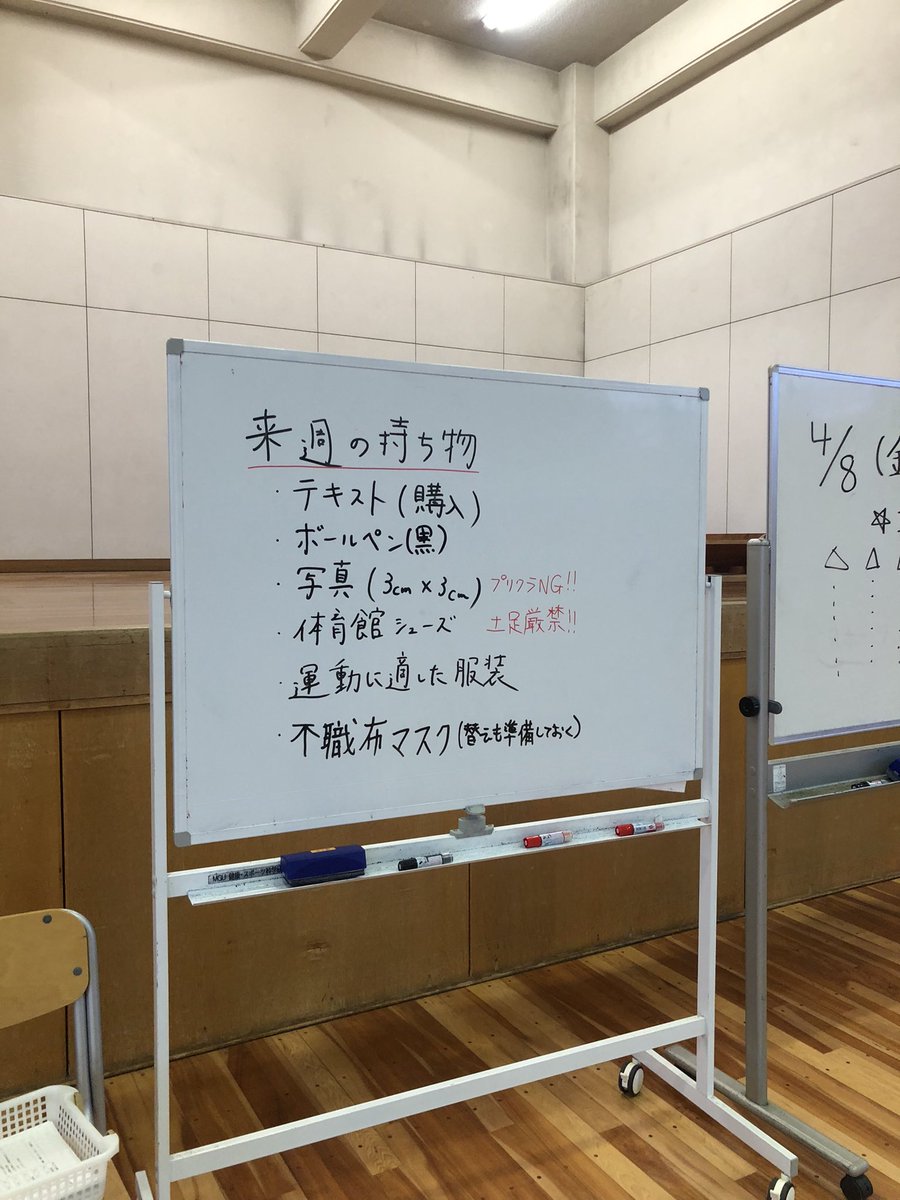 来週の持ち物
・テキスト(購入)
・ボールペン(黒)
・写真(3cm×3cm) プリクラNG!!
・体育館シューズ 土足厳禁!!
・運動に適した服装
・不職布マスク(替えも準備しておく)
4/8(金
☆
MGU 健康・スポーツ科学